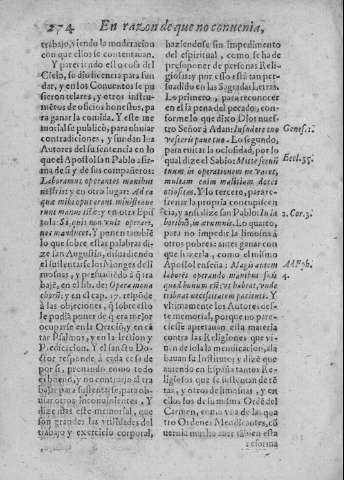 274 En razon de que no convenia,
trabajo, viendo la moderacion
con que ellos se sustentan.
Y pareciendo ello cosa del
Cielo, se dió licencia para fun
dar, y en los Conventos se pu
sieron telares, y otros instru-
mētos de oficios honestos, pa
ra ganar la comida. Y este me
morial se publicò, para obuiar
contradiciones, y fundan los
Autores del su sentencia en lo
que el Apostol san Pablo afir-
ma de si y de sus compañeros:
Laboramus operantes manibus
nostris; y en otro lugar: Ad ea
quæ mihi opus erant
manus istæ; y en otra Epis
tola: Si quis non vult operari,
nec manducet. Y ponen tambiē
lo que sobre estas palabras di-
ze san Augustin, disuadiendo
el sustentarse los Monges de li
mosnas, y persuadiendo à tra
bajo, en el lib. de: Opere mona
chorū; y en el cap. 17. respōde
à las objeciones, q̄ sobre esto
le podiā poner de q̄ era mejor
ocuparse en la Oracion, y en cā
tar Psalmos, y en la leccion y
Predicacion. Y el santo Do-
ctor responde à cada cosa de
por si, prouando como todo
es bueno, y no contrario al tra
bajo para sustentarse, para obu
uiar otros inconuinientes. Y
dize mas este memorial, que
son grandes las vtilidades del
trabajo y exercicio corporal,
haziendose sin impedimento
del espiritual, como se ha de
presuponer de personas Reli-
giosas; y por esso està tan per-
suadido en las Sagradas Letras.
Lo primero, para reconocer
en el la pena del pecado, con-
forme lo que dixo Dios nuest-
tro Señor à Adan: In sudore tuo Genes. 1.
vesceris pane tuo. Lo segundo,
para euitar la ociosidad, por lo
qual dize el Sabio: Mitte servū Eccl. 33.
tuum in operationem ne vacet,
multam enim malitiam docet
otiositas. Y lo tercero, para re-
frenar la propria concupiscen
cia, y assi dize san Pablo: In la 2. Cor. 3.
boribus, in ærumnis. Lo quarto,
para no impedir la limosna à
otros pobres: antes ganar con
que hazerla, como el mismo
Apostol enseña: Magis autem Ad Eph.
laboret operando manibus suis 4.
quod bonum est: vt habeat, unde
tribuat necessitatem patienti. Y
vltimamente los Autores des-
te memorial, porque no pare-
ciesse apretauan esta materia
contra las Religiones que vi-
uen de sola la mendicacion, ala
bauan su Instituto; y dize que
auiendo en España tantos Re-
ligiosos que se sustentan de rē-
tas, y otros de limosnas, y en
ellos los de su misma Ordē del
Carmen, como vna de las qua
tro Ordenes Mendicantes, cō
uernia mucho auer tābien esta
reforma